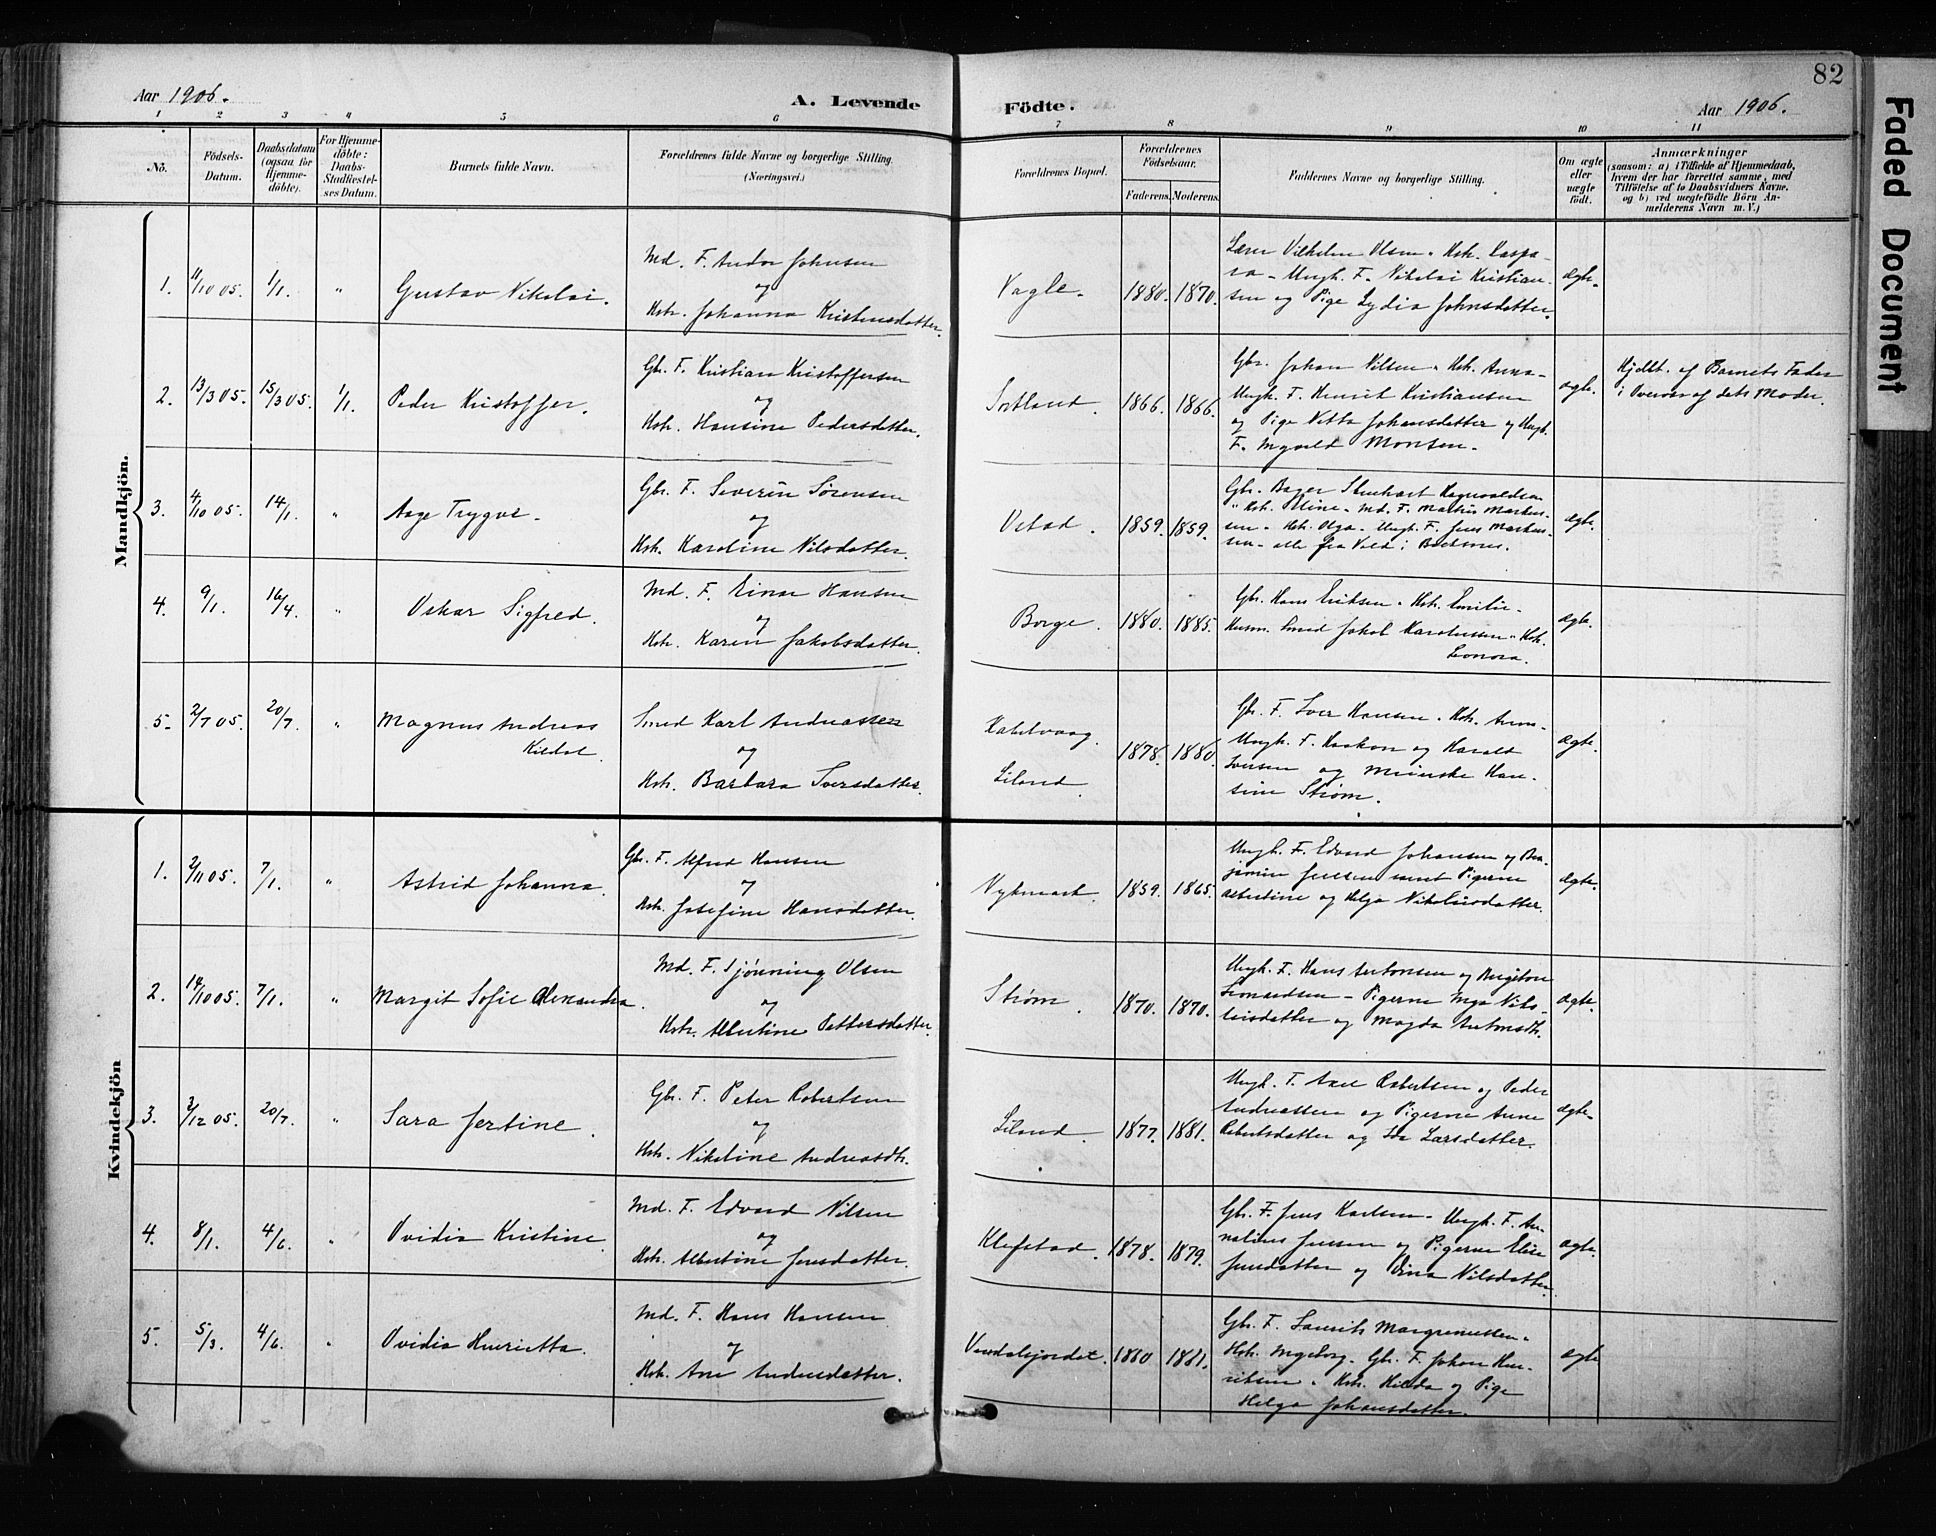 82
Aar 1906.
A. Levende Födte.
Aar 1906.
1 2 3 4 5 6 7 8 9 10 11
No.
Födsels-Datum.
Daabsdatum (ogsaa for Hjemme-döbte).
For Hjemme-döbte: Daabs-Stadfæstel-ses Datum.
Barnets fulde Navn.
Forældrenes fulde Navne og borgerlige Stilling.
(Næringsvei.)
Forældrenes Bopæl.
Forældrenes Födselsaar.
Faderens. Moderens.
Faddernes Navne og borgerlige Stilling.
Om ægte eller uægte födt.
Anmærkninger
(saasom: a) i Tilfælde af Hjemmedaab,
hvem der har forrettet samme, med
Tilföielse af to Daabsvidners Navne.
og b) ved uægtefödte Börn An-
melderens Navn m. V.)
Mandkjön.
1. 11/10 05. 1/1. " Gustav Nikolai.
Md. F. Andor Johnsen
og
Hstr. Johanna Kristensdatter.
Vagle. 1880. 1870.
Lærer Vilhelm Olsen. Hstr. Caspa-
ra - Ungk. F. Nikolai Kristian-
sen og Pige Lydia Johnsdatter.
ægte.
2. 13/3 05. 15/3 05. 1/1. Peder Kristoffer.
Gbr. F. Kristian Kristoffersen
og
Hstr. Hansine Pedersdatter.
Sortland. 1866. 1866.
Gbr. Johan Nilsen. Hstr. Anna-
Ungk. F. Henrik Kristiansen
og Pige Netta Johansdatter og Ungk.
F. Ingvald Monsen.
ægte.
Hjdbt. af Barnets Fader
i Overvær af dets Moder.
3. 4/10 05. 14/1. " Aage Trygve.
Gbr. F. Severin Sørensen
og
Hstr. Karoline Nilsdatter.
Vestad. 1859. 1859.
Hstr. Olga - Ungk. F. Jens Markus-
sen - alle fra Vold i
ægte.
4. 9/1. 16/4. " Oskar Sigfred.
Md. F. Einar Hansen
og
Hstr. Karen Jakobsdatter.
Borge. 1880. 1885.
Gbr. Hans Eriksen. Hstr. Emilie-
Husm. Smed Jakob Karolussen. Hstr.
Leonora.
ægte.
5. 2/7 05. 20/7. " Magnus Andreas
Kildal.
Smed Karl Andreassen
og
Hstr. Barbara Iversdatter.
Kabelvaag.
Liland. 1878. 1880.
Gbr. F. Iver Hansen. Hstr. Anna-
Ungk. F. Haakon og Harald
Iversen og Enke Han-
sine Strøm.
ægte.
Kvindekjön
1. 2/11 05. 7/1. " Astrid Johanna.
Gbr. F. Alfred Hansen
og
Hstr. Josefine Hansdatter.
Nykmark. 1859. 1865.
Ungk. F. Edvard Johansen og Ben-
jamin Jensen samt Pigerne
Albertine og Helga Nikolaisdatter.
ægte.
2. 14/10 05. 7/1. " Margit Sofie Alexandra.
Md. F. Hjørning Olsen
og
Hstr. Albertine Pettersdatter.
Strøm. 1870. 1870.
Ungk. F. Hans Antonsen og Bergiton
Leonardsen - Pigerne Inga Niko-
laisdatter og Magda Antonsdtr.
ægte.
3. 3/12 05. 20/7. " Sara Jertine.
Gbr. F. Peter Robertsen
og
Hstr. Nikoline Andreasdtr.
Liland. 1877. 1881.
Ungk. F. Axel Robertsen og Peder
Andreassen og Pigerne Anne
Robertsdatter og Ida Larsdatter.
ægte.
4. 8/1. 4/6. " Ovidia Kristine.
Md. F. Edvard Nilsen
og
Hstr. Albertine Jensdatter.
Klefstad. 1878. 1879.
Gbr. F. Jens Karlsen. Ungk. F. An-
nalius Jensen og Pigerne Elise
Jensdatter og Dina Nilsdatter.
ægte.
5. 5/3. 4/6. " Ovidia Henrietta.
Md. F. Hans Hansen
og
Hstr. Ane Andersdatter.
Vendalsjordet. 1880 1881.
Gbr. F. Laurits Margreniussen.
Hstr. Ingeborg. Gbr. F. Johan Hen-
riksen. Hstr. Hilda og Pige
Helga Johansdatter.
ægte
Faded Document